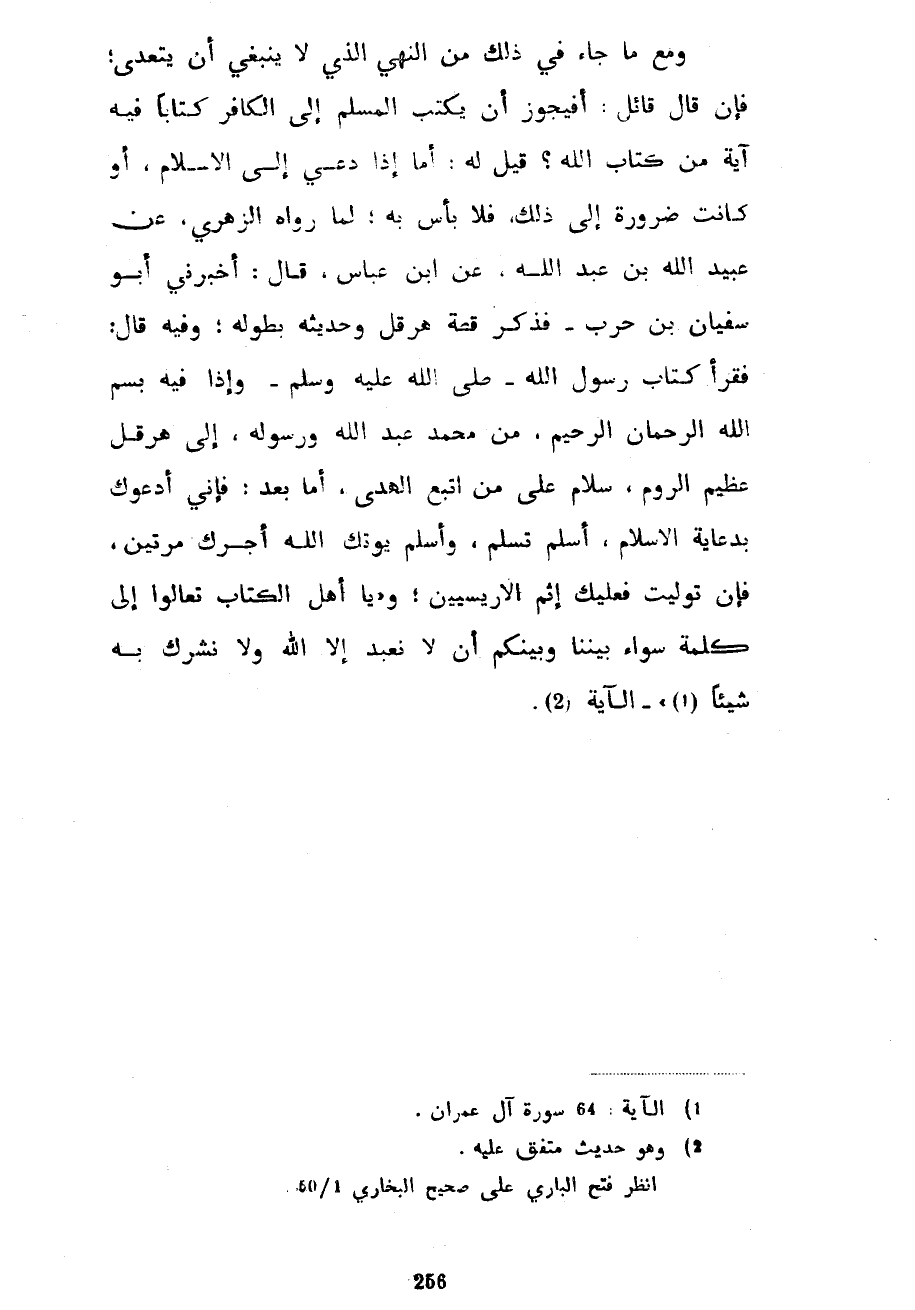 ومع ما جاء في ذلك من النهي الذي لا ينبغي أن يتعدى؛
فإن قال قائل : أفيجوز أن يكتب المسلم إلى الكافر كتاباً فيه
آية من كتاب الله ؟ قيل له : أما إذا دعي إلى الاسلام ، أو
كانت ضرورة إلى ذلك، فلا بأس به ؛ لما رواه الزهري، عن
عبيد الله بن عبد الله ، عن ابن عباس ، قال : أخبرني أبو
سفيان بن حرب - فذكر قصة هرقل وحديثه بطوله ؛ وفيه قال:
فقرأ كتاب رسول الله - صلى الله عليه وسلم - وإذا فيه بسم
الله الرحمان الرحيم ، من محمد عبد الله ورسوله ، إلى هرقل
عظيم الروم ، سلام على من اتبع الهدى ، أما بعد : فإني أدعوك
بدعاية الاسلام ، أسلم تسلم ، وأسلم يوتك الله أجرك مرتين ،
فإن توليت فعليك إثم الاريسيين ؛ و«يا أهل الكتاب تعالوا إلى
كلمة سواء بيننا وبينكم أن لا نعبد إلا الله ولا نشرك به
شيئاً (1)» - الآية (2).
1) الآية : 64 سورة آل عمران .
2) وهو حديث متفق عليه .
انظر فتح الباري على صحيح البخاري 50/1 .
256